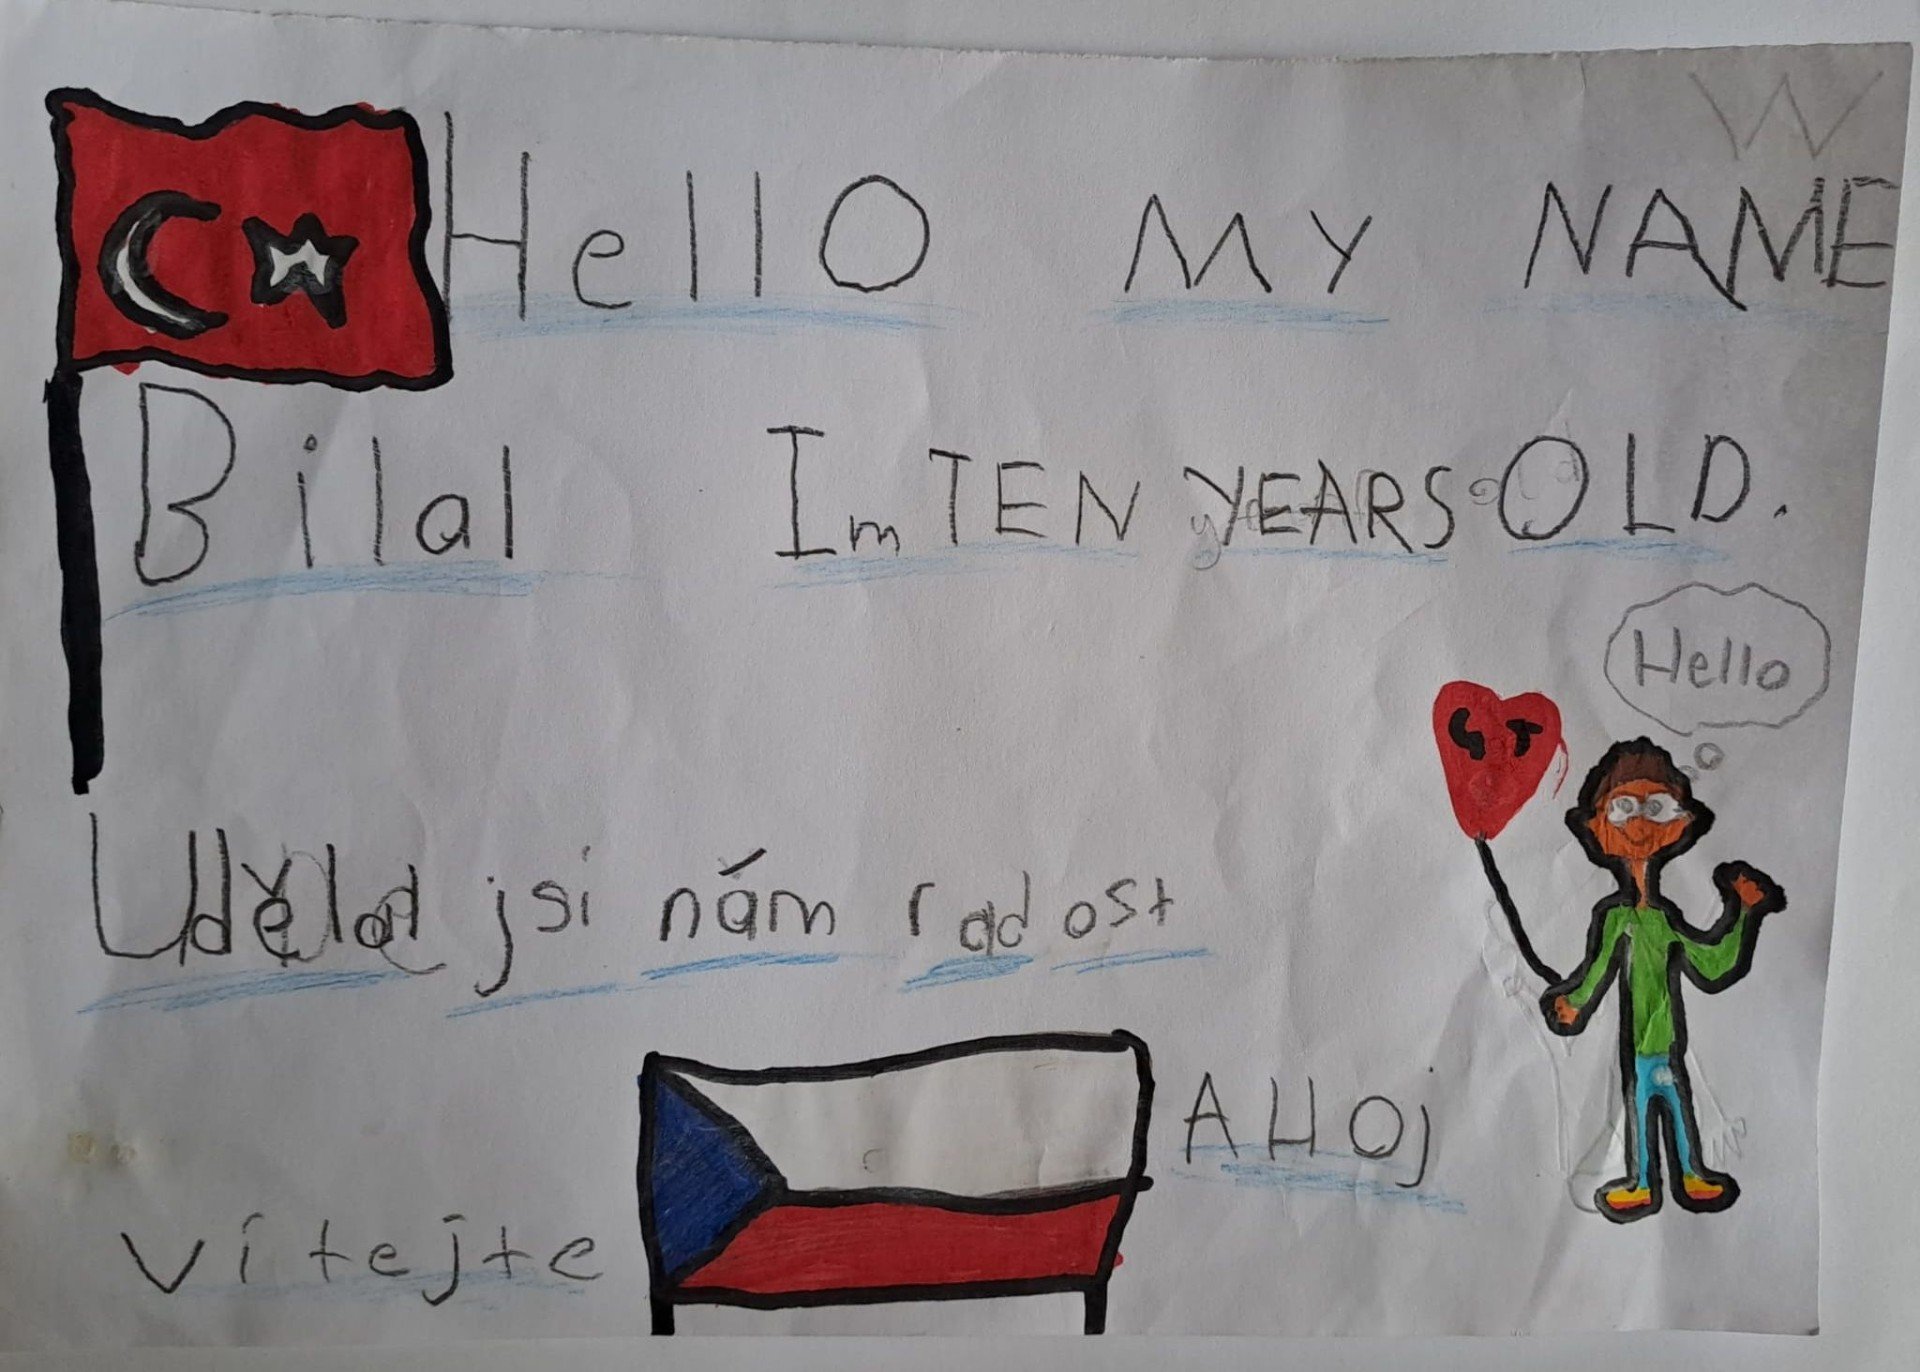 W
Hello MY NAME
Bilal Im TEN YEARS OLD.
Hello
jsi nám radost
AHOj
vítejte